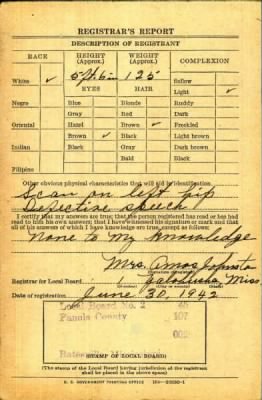 REGISTRAR'S REPORT
DESCRIPTION OF REGISTRANT
RACE HEIGHT (Approx.) WEIGHT (Approx.) COMPLEXION
5 ft 6 in 125
White ✓ EYES HAIR Sallow
Light ✓
Negro Blue Blonde Ruddy
Gray Red Dark
Oriental Hazel Brown ✓ Freckled
Brown ✓ Black Light brown
Indian Black Gray Dark brown
Bald Black
Filipino
Other obvious physical characteristics that will aid in identification
Scar on left hip
Defective speech
I certify that my answers are true; that the person registered has read or has had
read to him his own answers; that I have witnessed his signature or mark and that
all of his answers of which I have knowledge are true, except as follows:
None to my knowledge
Mrs. Amos Johnston
Registrar for Local Board Miss.
Date of registration June 30, 1942
Local Board No. 2
Panola County 107
Batesville
(STAMP OF LOCAL BOARD)
(The stamp of the Local Board having jurisdiction of the registrant
shall be placed in the above space)
U. S. GOVERNMENT PRINTING OFFICE